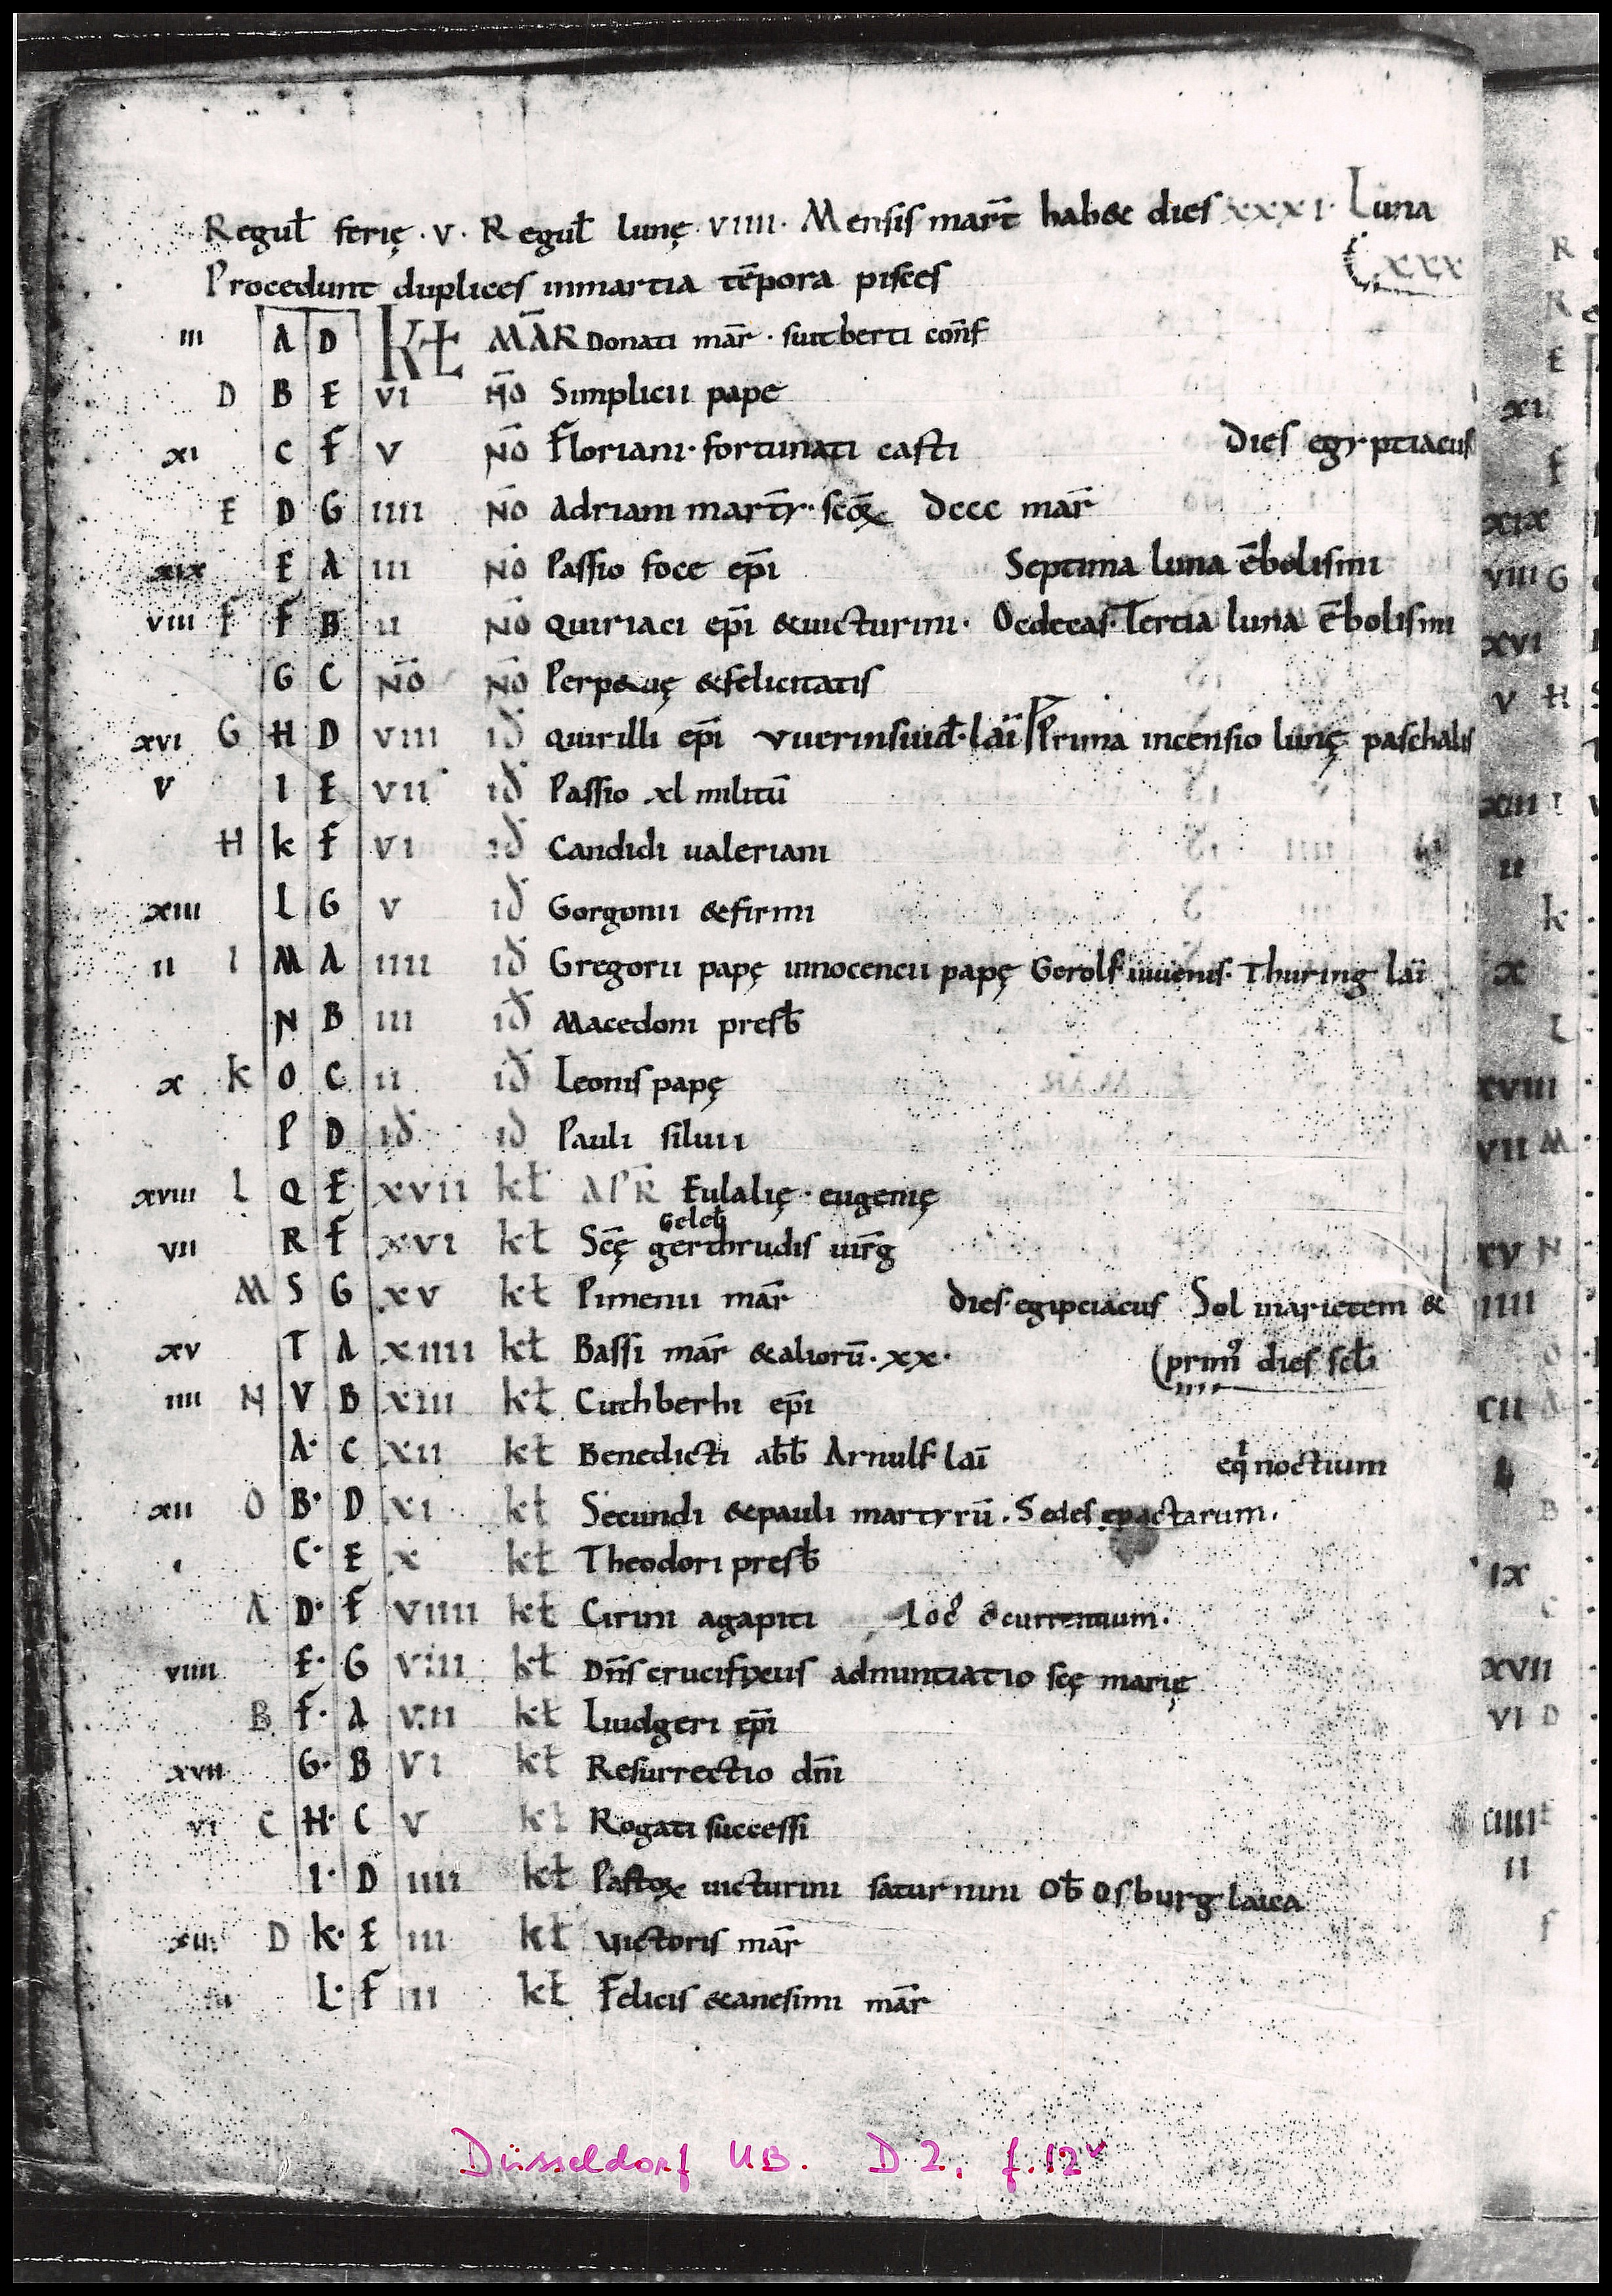 Regul̄ ferię · v · Regul̄ lunę · viiii · Mensis mar̄t hab& dies xxxi · Luna
xxx
Procedunt duplices inmartia te̅pora pisces
iii A D Kł MA̅R Donati ma̅r · suitberti con̅f
D B E vi N̅o Simplicii pape
xi C F v N̅o Floriani · fortunati casti dies egyptiacus
E D G iiii N̅o Adriani mart̅yr · sc̅oꝝ dccc ma̅r
xix E A iii N̅o Passio foce ep̅i Septima luna e̅bolismi
viii F F B ii N̅o Quiriaci ep̅i &uicturini · Ocdecas · Tertia luna e̅bolismi
G C N̅o N̅o Perp&uę &felicitatis
xvi G H D viii id̅ Quirilli ep̅i vuerinsuid̅ · lai̅ Prima incensio lunę paschalis
v I E vii id̅ Passio xl militu̅
H k F vi id̅ Candidi ualeriani
xiii L G v id̅ Gorgonii &firmi
ii I M A iiii id̅ Gregorii papę innocencii papę Gerolf iuuenis · Thuring lai̅
N B iii id̅ Macedoni presb̅
x k O C ii id̅ Leonis papę
P D id̅ id̅ Pauli siluii
xviii L Q E xvii kł AP̅R Eulalię · eugenię
Geleb̅
vii R F xvi kł Sc̅ę gerthrudis uir̅g
M S G xv kł Pimenii ma̅r dies · egipciacus Sol inarietem &
xv T A xiiii kł Bassi ma̅r &alioru̅ · xx · prim᷒ dies scl̅i
iiii N V B xiii kł Cuthberhi ep̅i
A· C xii kł Benedicti ab̅b Arnulf lai̅ eq̍noctium
xii O B· D xi kł Secundi &pauli martyru̅ · Sedes epactarum ·
i C· E x kł Theodori presb̅
A D· F viiii kł Cirini agapiti Loc᷒ c̅currentium ·
viiii E· G viii kł Dn̅s crucifixus adnuntiatio sc̅ę marię
B F· A vii kł Liudgeri ep̅i
xvii G· B vi kł Resurrectio dn̅i
vi C H· C v kł Rogati successi
I· D iiii kł Pastoꝝ uicturini saturnini Ob̅ Osburg laica
D k· E iii kł Victoris ma̅r
L· F ii kł Felicis &anesimi ma̅r
Düsseldorf UB. D 2, f. 12v